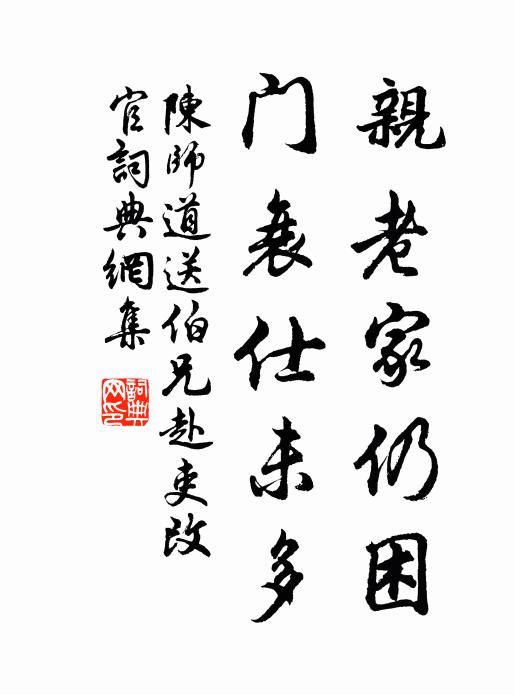 親老家仍困
门衰仕未多
陳師道送伯兄赴吏改
官詞典網集
詞典
网印